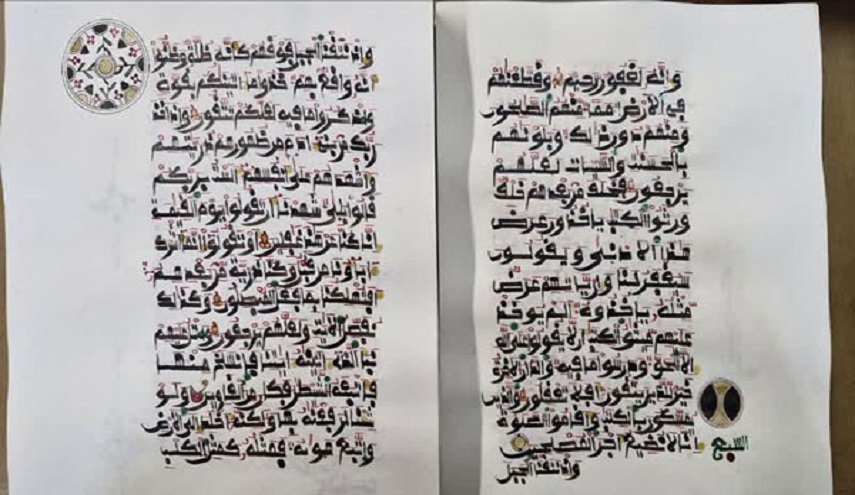 وإنه لغفور رحيم وقطعنهم
في الارض امما منهم الصلحون
ومنهم دون ذلك وبلونهم
بالحسنت والسيات لعلهم
يرجعون فخلف من بعدهم خلف
ورثوا الكتب ياخذون عرض
هذا الادنى ويقولون
سيغفر لنا وان ياتهم عرض
مثله ياخذوه الم يوخذ
عليهم ميثق الكتب ان لا يقولوا على الله
الا الحق ودرسوا ما فيه والدار الاخرة
خير للذين يتقون افلا تعقلون والذين
يمسكون بالكتب واقاموا الصلوة
انا لا نضيع اجر المصلحين
السبع
واذ نتقنا الجبل
واذ نتقنا الجبل فوقهم كانه ظلة وظنوا
انه واقع بهم خذوا ما اتينكم بقوة
واذكروا ما فيه لعلكم تتقون واذ اخذ
ربك من بني ادم من ظهورهم ذريتهم
واشهدهم على انفسهم الست بربكم
قالوا بلى شهدنا ان تقولوا يوم القيمة
انا كنا عن هذا غفلين او تقولوا انما اشرك
اباونا من قبل وكنا ذرية من بعدهم
افتهلكنا بما فعل المبطلون وكذلك
نفصل الايت ولعلهم يرجعون واتل عليهم
نبا الذي اتينه ايتنا فانسلخ منها
فاتبعه الشيطن فكان من الغاوين ولو
شينا لرفعنه بها ولكنه اخلد الى الارض
واتبع هويه فمثله كمثل الكلب